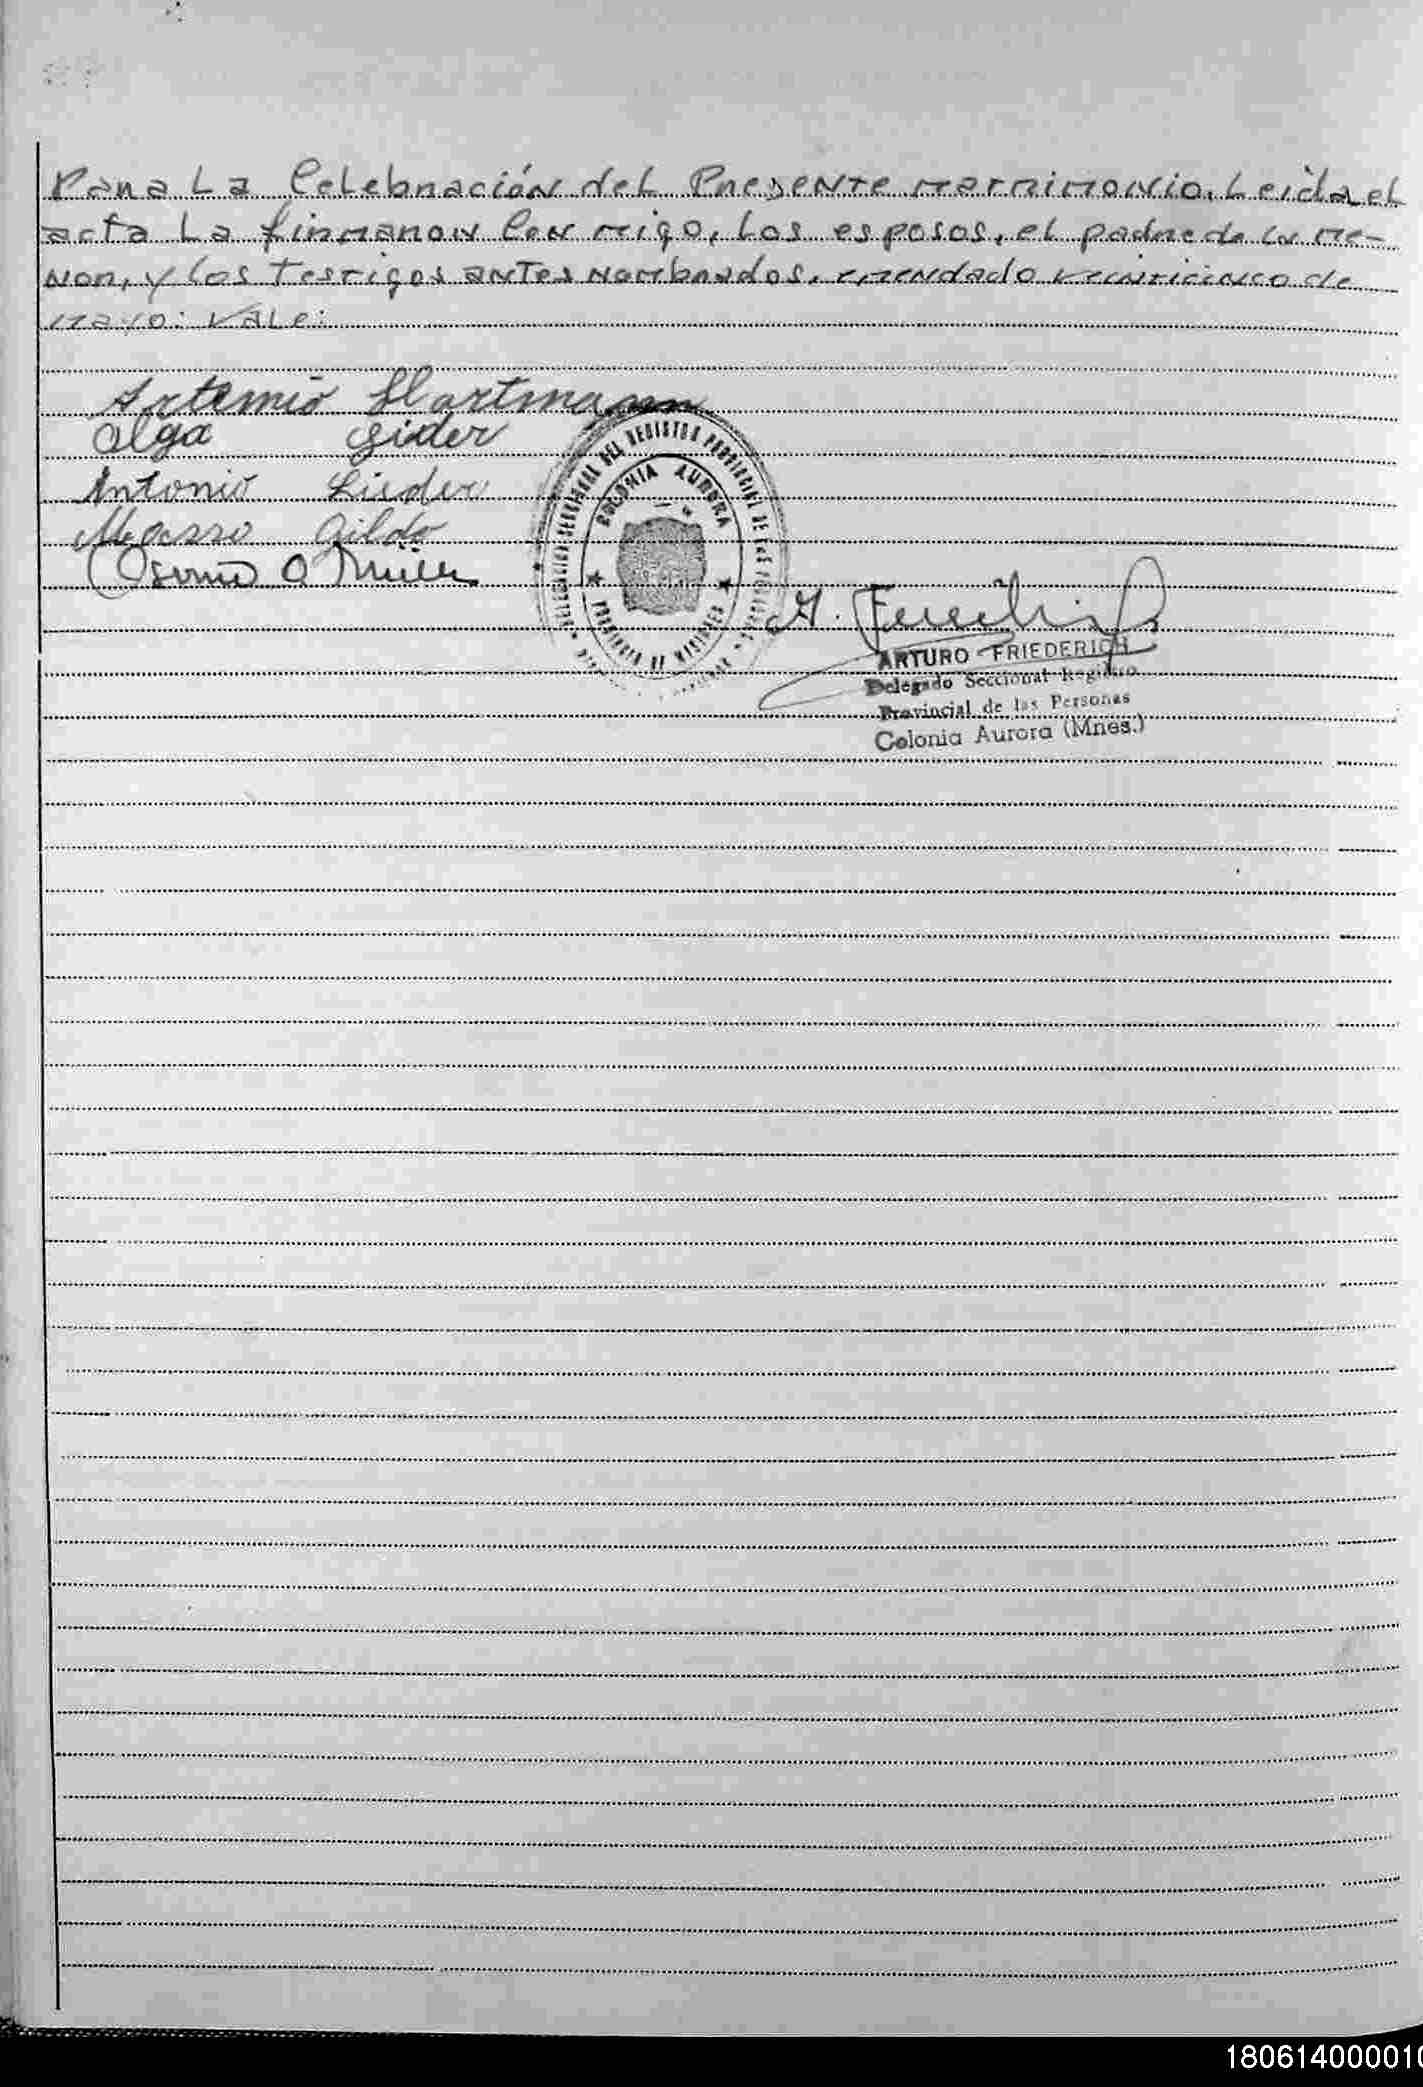 Para La Celebración del Presente matrimonio. Leida el
acta La firmaron Con migo, Los esposos, el padre de la me-
nor, y los Testigos antes nombrados. enmendado veinticinco de
mayo: Vale:
Artemio Hartmann
Olga Lider
Antonio Lieder
Gildo
DEL REGISTRO PROVINCIAL DE LAS
COLONIA AURORA
PROVINCIA DE MISIONES
ARTURO FRIEDERICH
Delegado Seccional Registro
Provincial de las Personas
Colonia Aurora (Mnes.)
180614000010